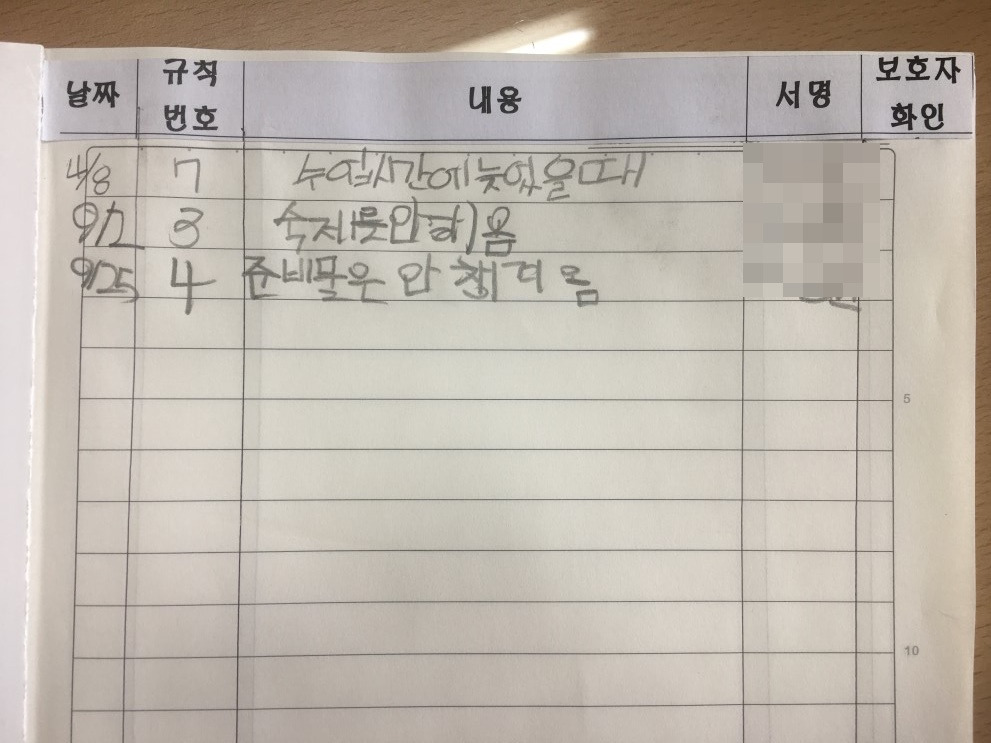 날짜 규칙 번호 내용 서명 보호자 화인
4/8 7 수업시간에 늦었을때
9/2 3 숙제를안해옴
9/25 4 준비물은 안 챙겨 옴
5
10